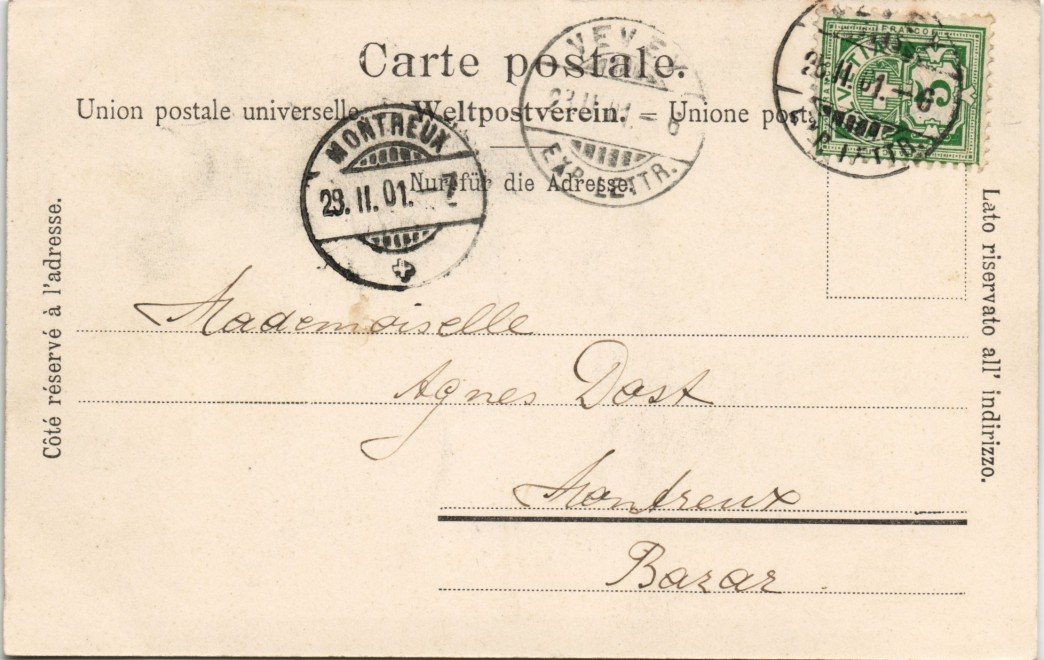 Carte postale.
Union postale universelle. = Weltpostverein. = Unione posta
Nur für die Adresse.
Côté réservé à l'adresse.
Lato riservato all' indirizzo.
FRANCO
5
VEVEY
28.II.01.–6
EXP. LETTR.
VEVEY
28.II.01.–6
EXP. LETTR.
MONTREUX
28.II.01.–7
Mademoiselle
Agnes Dost
Montreux
Bazar